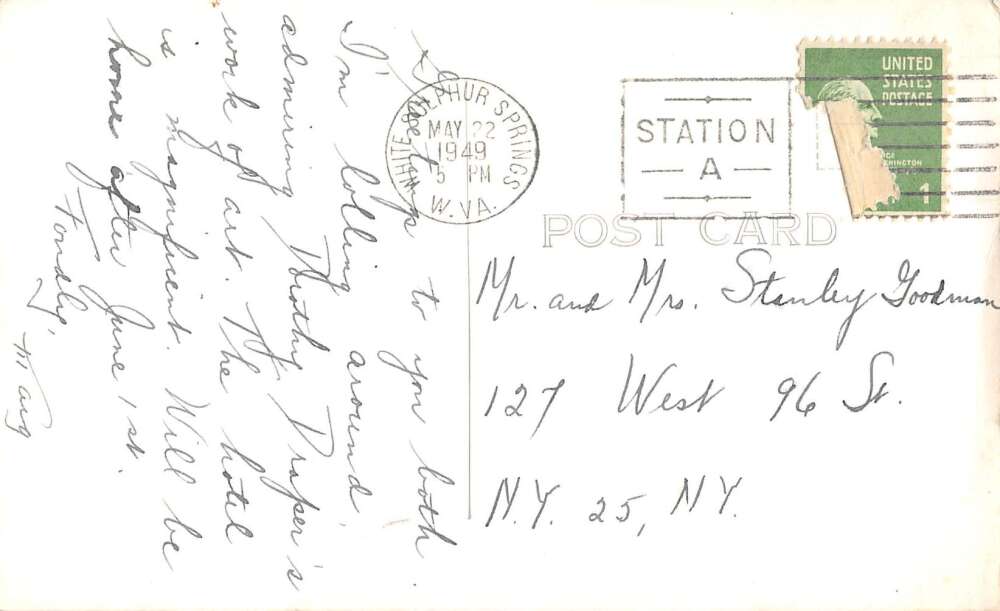 Greetings to you both.
I'm lolling around,
admiring Dorothy Draper's
work of art. The hotel
is magnificent. Will be
home after June 1st.
Fondly,
Marg
WHITE SULPHUR SPRINGS
MAY 22
1949
5 PM
W. VA.
STATION
A
UNITED
STATES
POSTAGE
1
POST CARD
Mr. and Mrs. Stanley Goodman
127 West 96 St.
N.Y. 25, N.Y.